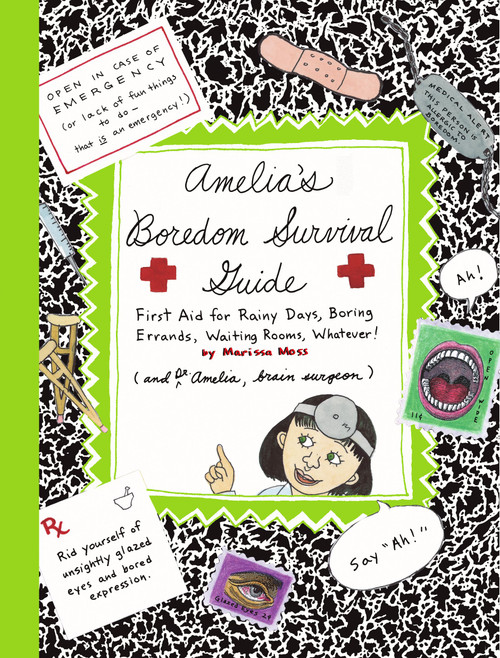 OPEN IN CASE OF
EMERGENCY
(or lack of fun things
to do —
that is an emergency!)
MEDICAL ALERT
THIS PERSON IS
ALLERGIC TO
BOREDOM
Amelia's
Boredom Survival
Guide
First Aid for Rainy Days, Boring
Errands, Waiting Rooms, Whatever!
by Marissa Moss
(and Dr. Amelia, brain surgeon)
Ah!
OPEN WIDE
11¢
Rx
Rid yourself of
unsightly glazed
eyes and bored
expression.
Say "Ah!"
Glazed Eyes 24